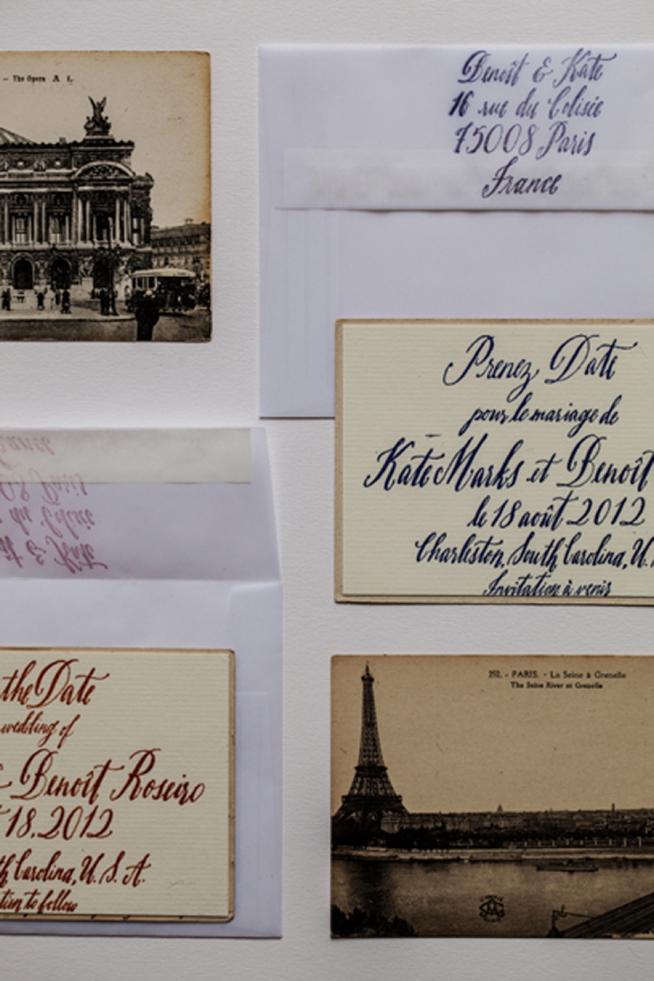 - The Opera A L.
Benoît & Kate
16 rue du Colisée
75008 Paris
France
Prenez Date
pour le mariage de
Kate Marks et Benoît
le 18 août 2012
Charleston, South Carolina, U.
Invitation à venir
Benoît & Kate
rue du Colisée
Paris
the Date
wedding of
Benoît Roseiro
18, 2012
Carolina, U. S. A.
to follow
252. - PARIS. - La Seine à Grenelle
The Seine River at Grenelle